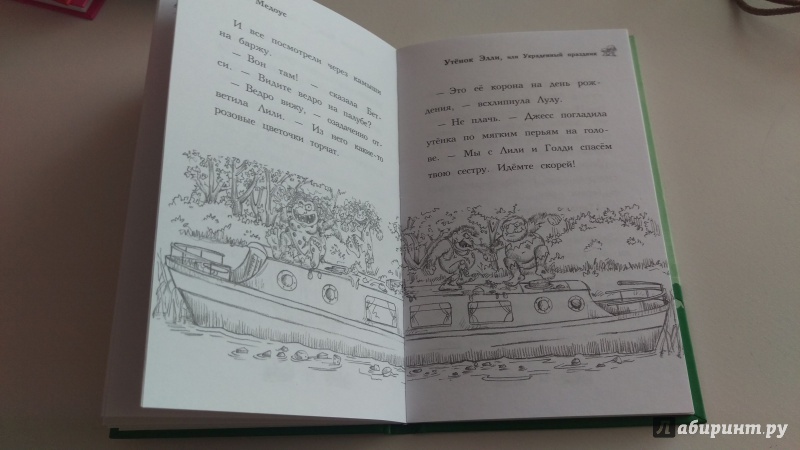 Медоус
И все посмотрели через камыши
на баржу.
— Вон там! — сказала Бет-
си. — Видите ведро на палубе?
— Ведро вижу, — озадаченно от-
ветила Лили. — Из него какие-то
розовые цветочки торчат.
Утёнок Элли, или Украденный праздник
— Это её корона на день рож-
дения, — всхлипнула Лулу.
— Не плачь. — Джесс погладила
утёнка по мягким перьям на голо-
ве. — Мы с Лили и Голди спасём
твою сестру. Идёмте скорей!
Лабиринт.ру